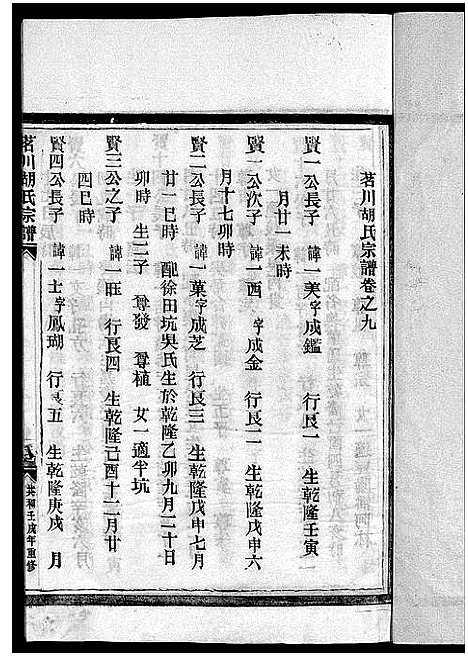 茗川胡氏宗譜卷之九
賢一公長子 諱一美字成鑑 行長一 生乾隆壬寅
月廿一未時
賢一公次子 諱一西 字成金 行長二 生乾隆戊申六
月十七卯時
賢二公長子 諱一菓字成芝 行長三 生乾隆戊申七月
廿一巳時 配徐田坑吳氏生於乾隆乙卯九月二十日
卯時 生二子 尊發 尊植 女一適半坑
賢三公之子 諱一旺 行長四 生乾隆己酉十二月廿
四巳時
賢四公長子 諱一士字鳳瑚 行長五 生乾隆庚戌 月
茗川胡氏宗譜
共和壬戌年重修